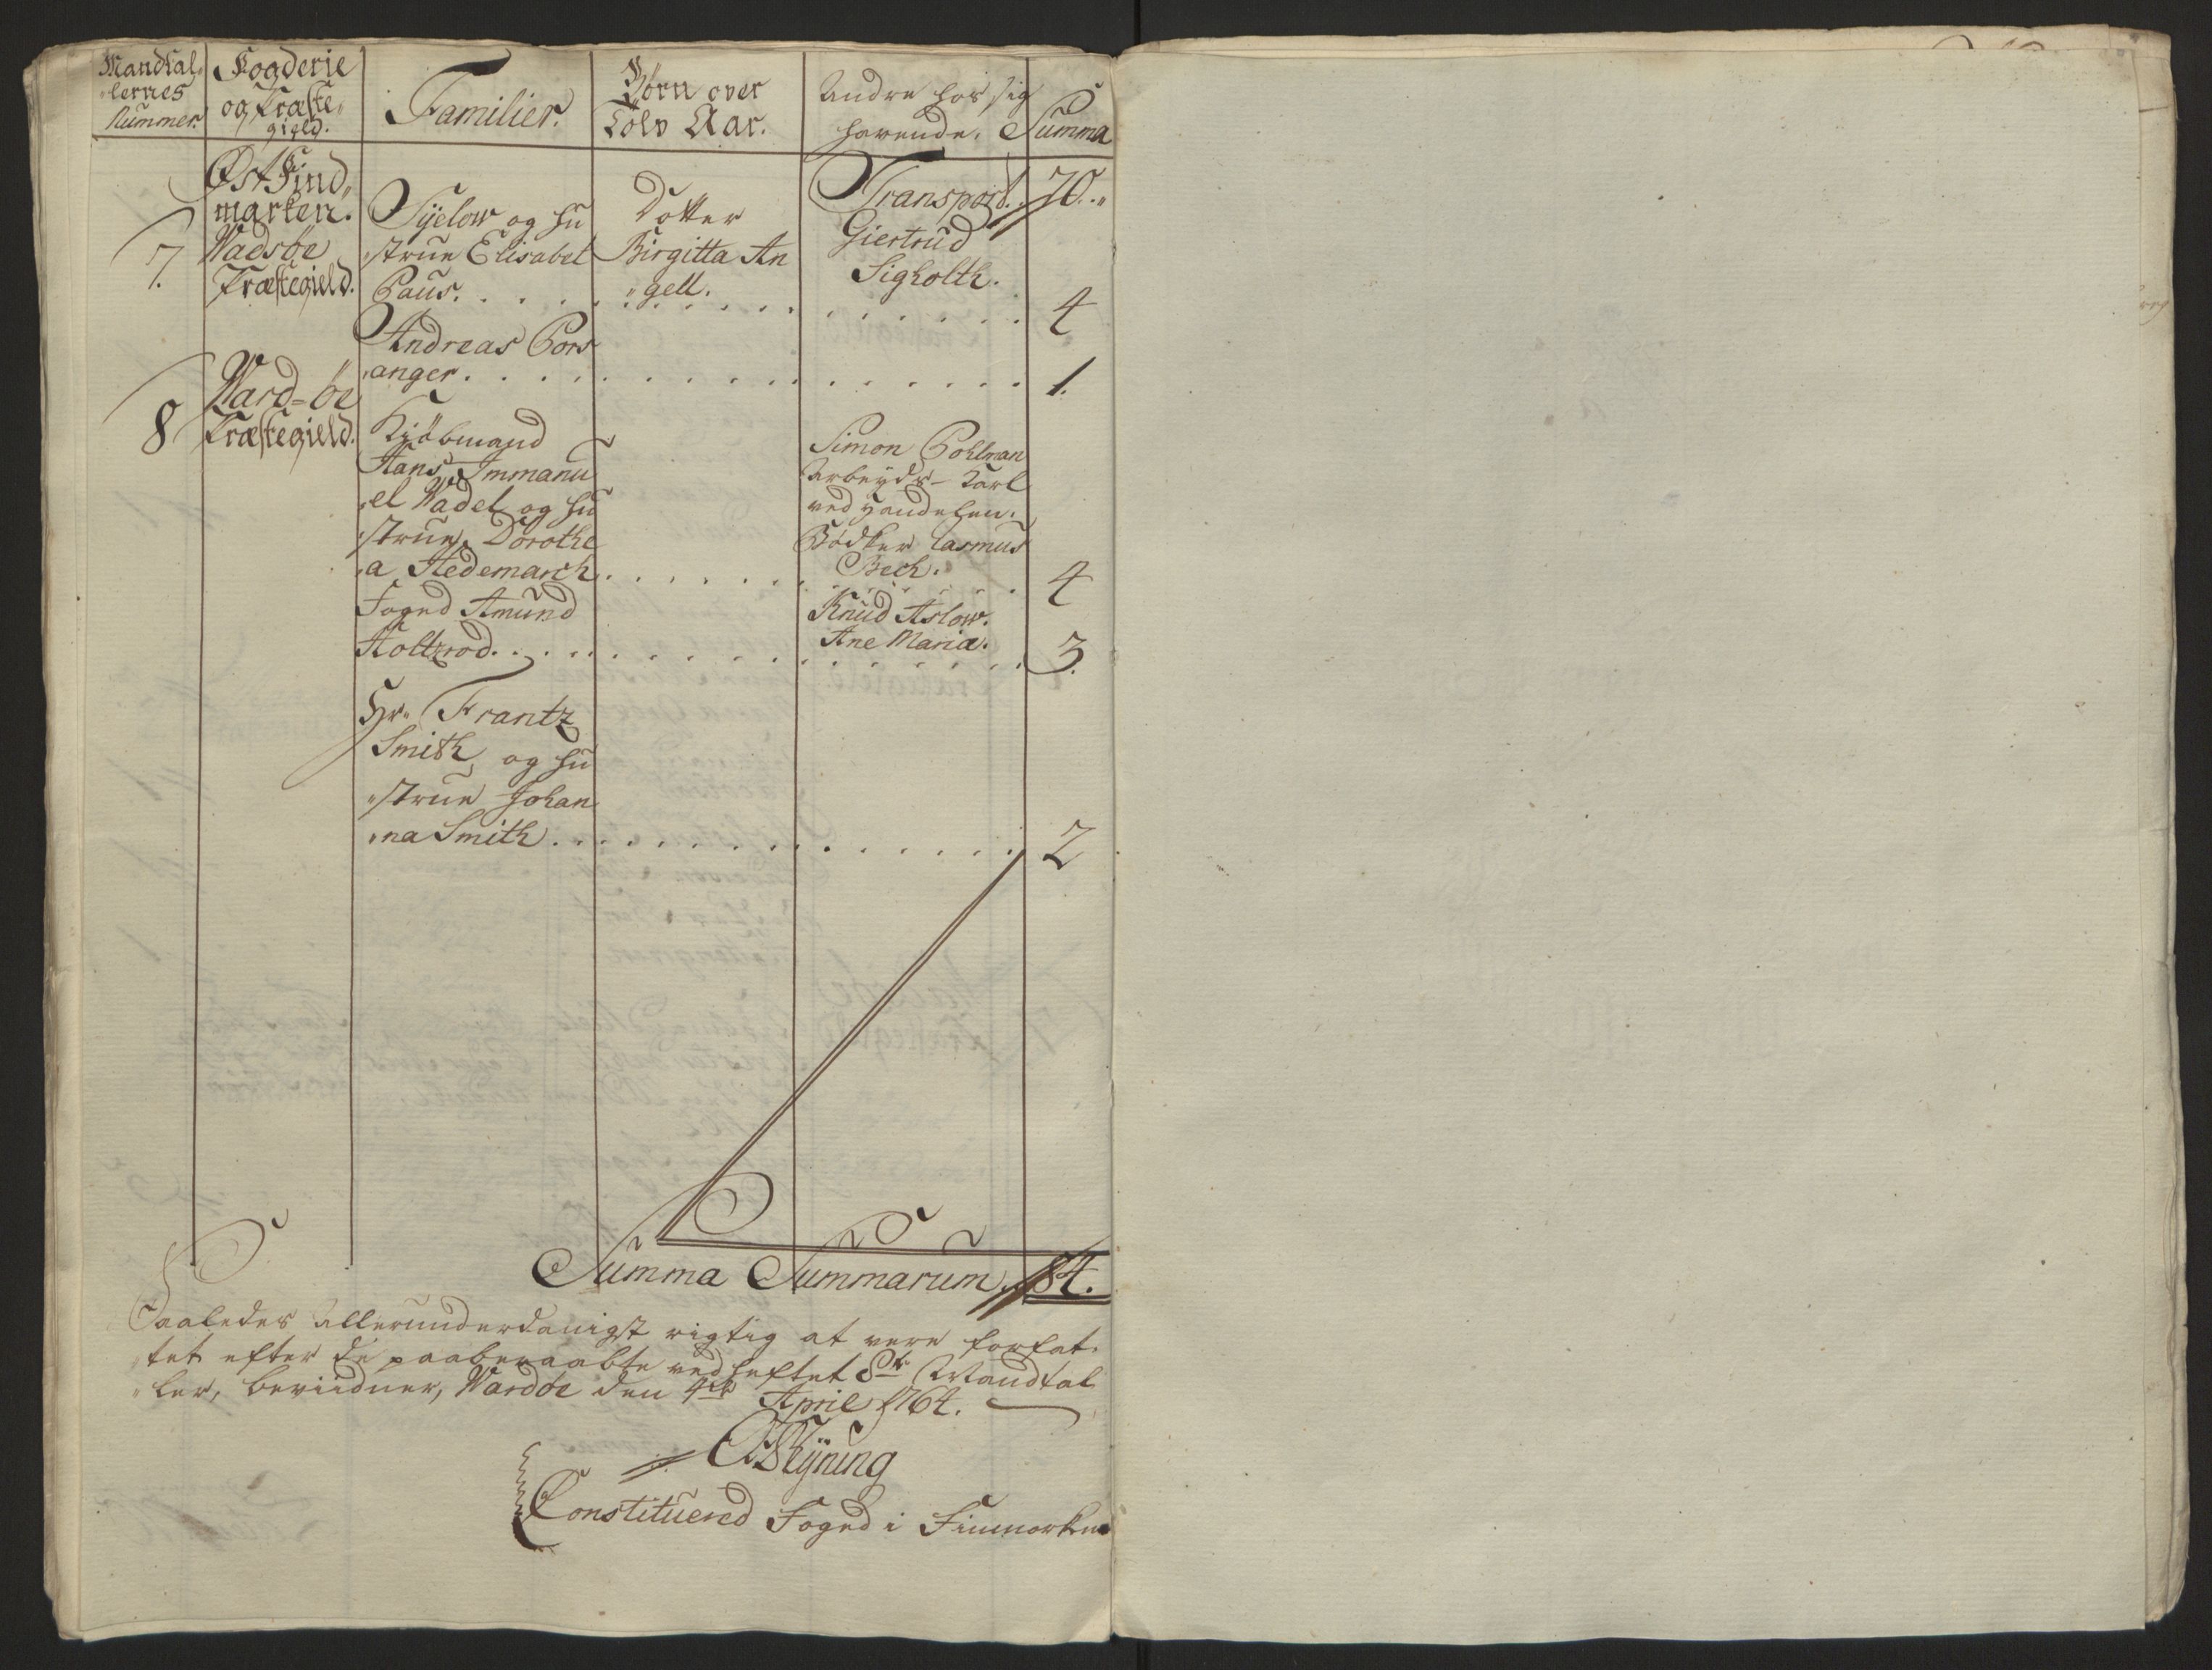 Mandtal„
„lernes
Nummer.
Fogderie
og Præste„
gield.
Familier.
Börn over
Tolv Aar.
Andre hos sig
havende.
Summa
Øst Find„
marken.
Transport. 70.„
7.
Wadsöe
Præstegield.
Syelow og hu
„strue Elisabet
Paus.
Dotter
Birgitta An
„gell.
Giertrud
Sigholth.
4
Andreas Pors
„anger.
1.
8
Ward-öe
Præstegield.
Kiöbmand
Hans Immanu
„el Wadel og hu
„strue Dorothe
„a Hedemarck
Simon Pohlman
Arbeyds-Karl
ved Handelen.
Bödker Rasmus
Bech.
4
Foged Amund
Holtzrod.
Knud Aslow.
Ane Maria.
3.
Hr. Frantz
Smith og hu
„strue Johan
„na Smith.
2
Summa Summarum 84.
Saaledes Allerunderdanigst rigtig at være forfat„
„tet efter de paaberaabte ved heftet 8te Mandtal
„ler, bevidner, Wardöe den 4de
April 1764.
Rÿning
Constituered Foged i Finmorken